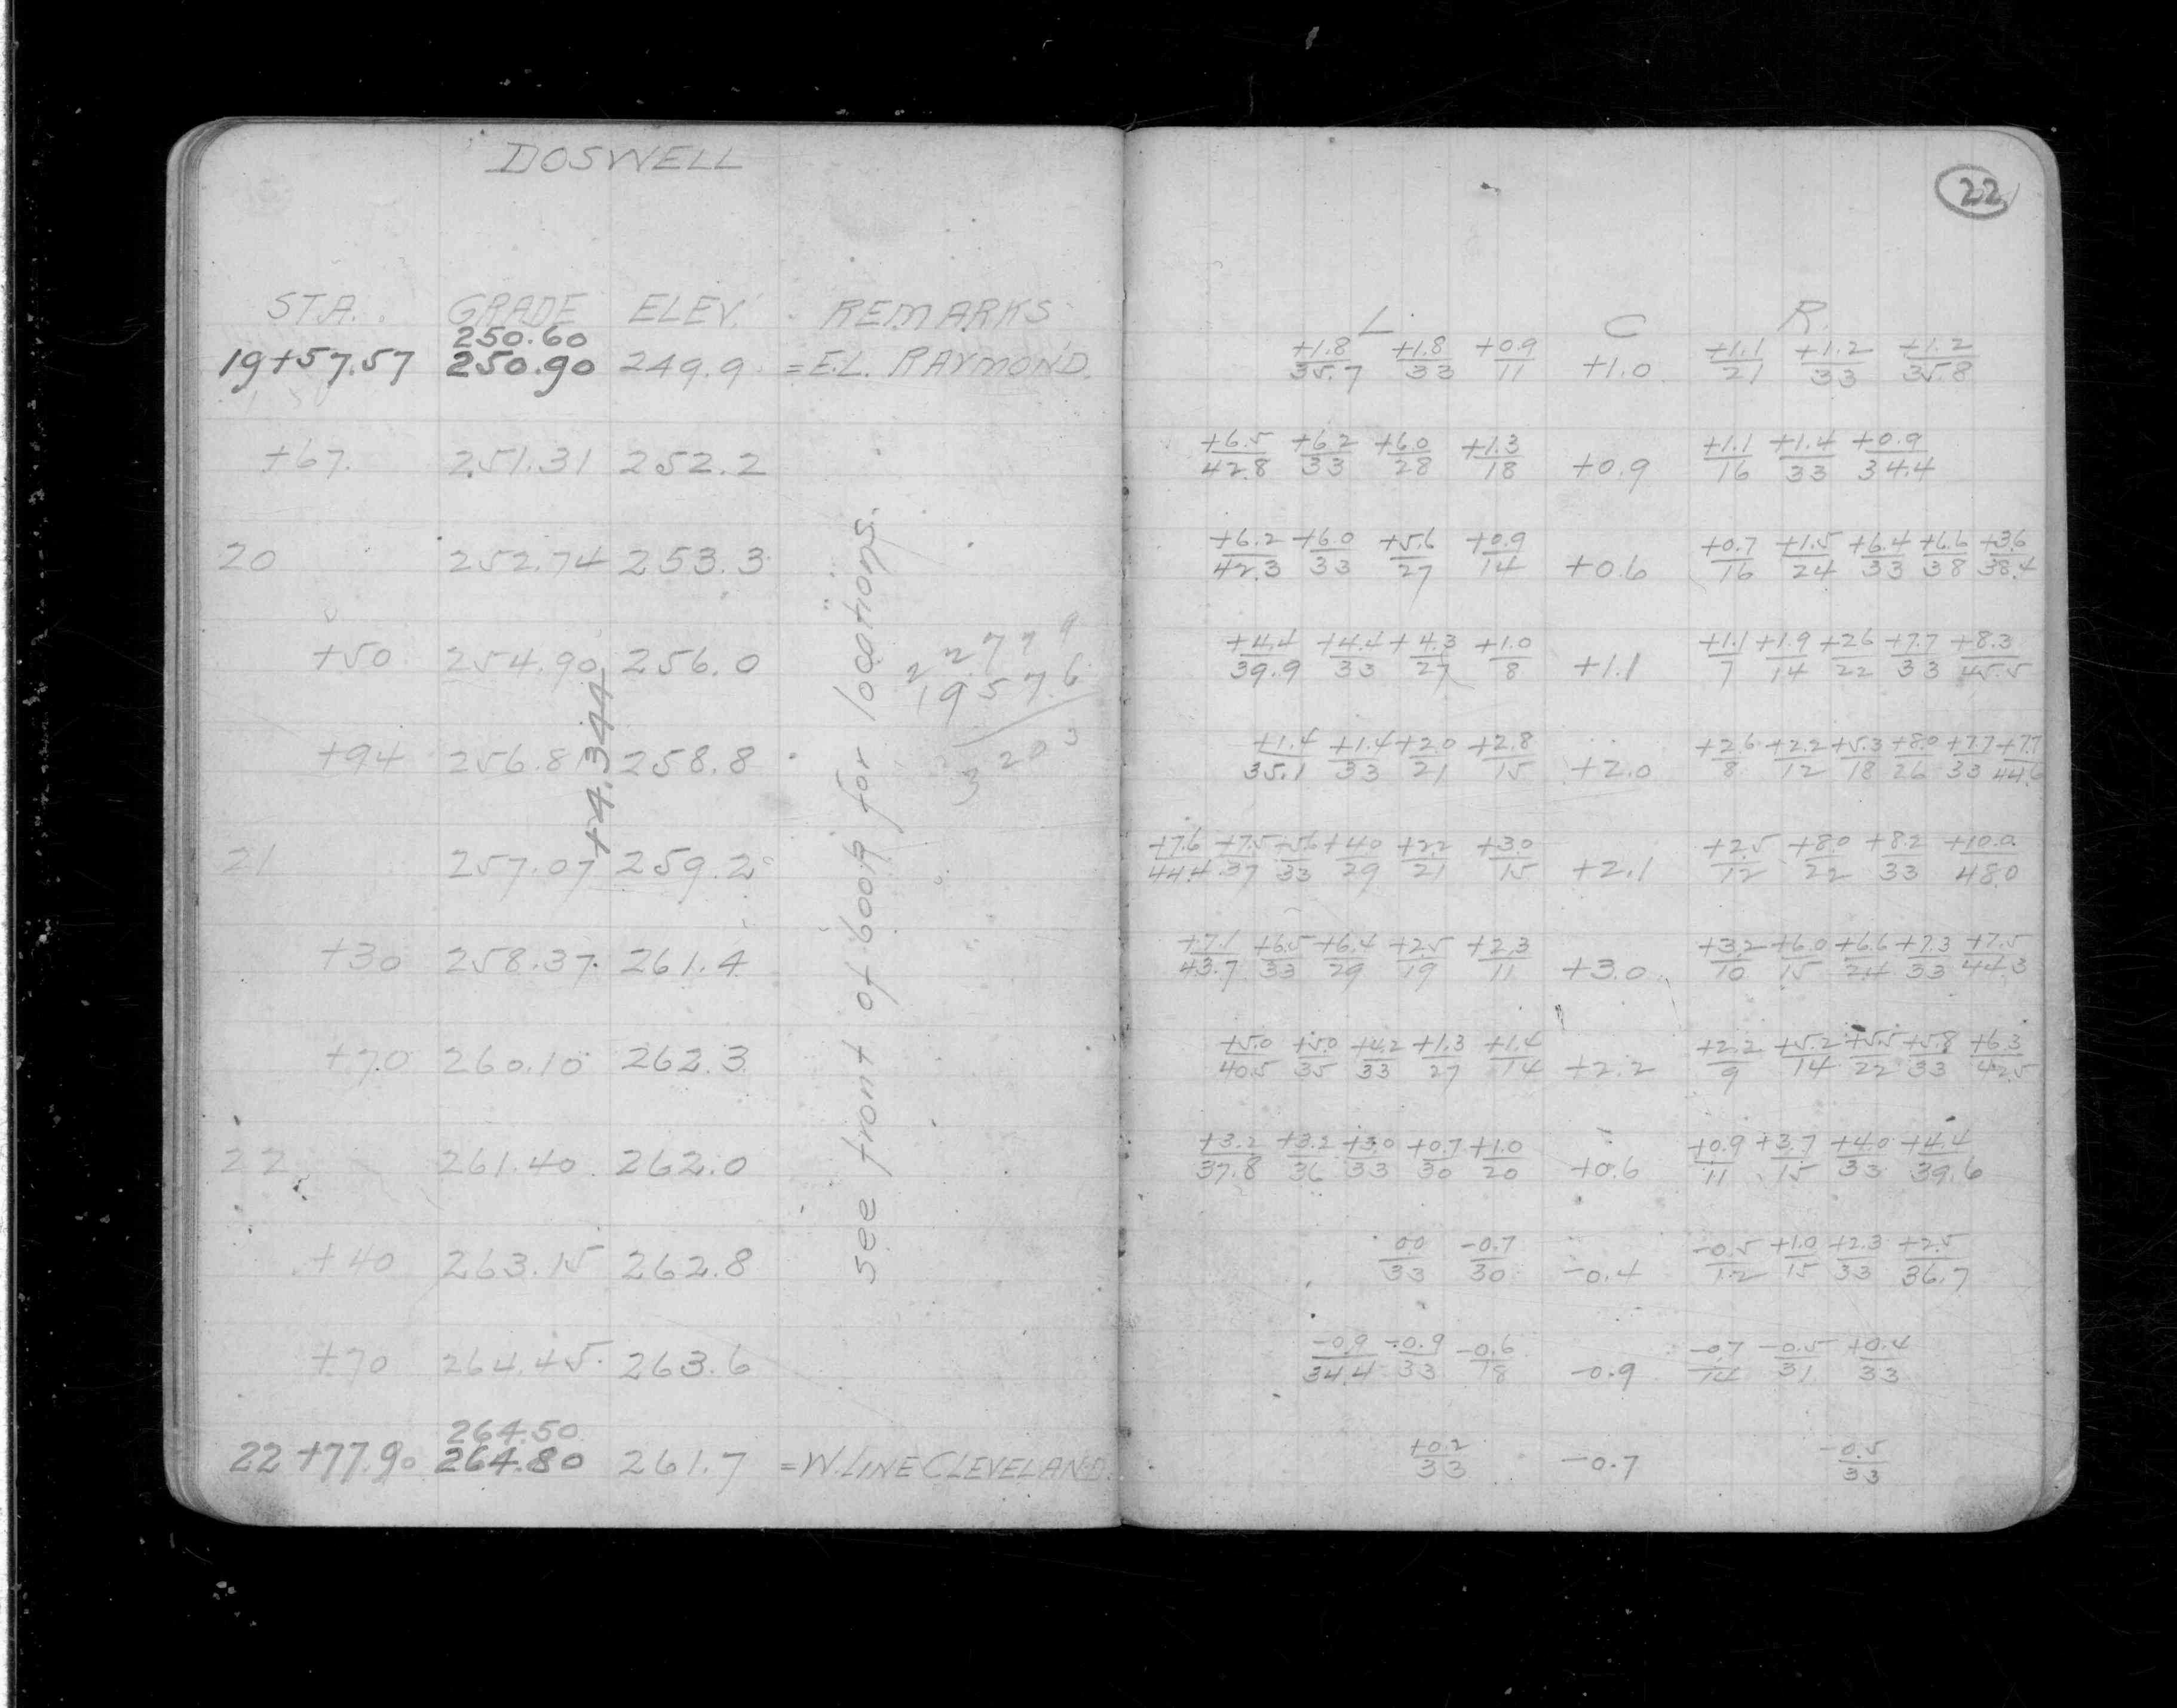 DOSWELL
22
STA. GRADE ELEV. REMARKS L. C R.
250.60
19+57.57 250.90 249.9 =E.L. RAYMOND. +1.8/35.7 +1.8/33 +0.9/11 +1.0 +1.1/21 +1.2/33 +1.2/35.8
+67. 251.31 252.2 +6.5/42.8 +6.2/33 +6.0/28 +1.3/18 +0.9 +1.1/16 +1.4/33 +0.9/34.4
20 252.74 253.3 +6.2/42.3 +6.0/33 +5.6/27 +0.9/14 +0.6 +0.7/16 +1.5/24 +6.4/33 +6.6/38 +3.6/38.4
+50 254.90 256.0 +4.4/39.9 +4.4/33 +4.3/27 +1.0/8 +1.1 +1.1/7 +1.9/14 +2.6/22 +7.7/33 +8.3/45.5
+94 256.81 258.8 +1.4/35.1 +1.4/33 +2.0/21 +2.8/15 +2.0 +2.6/8 +2.2/12 +5.3/18 +8.0/26 +7.7/33 +7.7/44.6
21 257.07 259.2 +7.6/44.4 +7.5/37 +5.6/33 +4.0/29 +2.2/21 +3.0/15 +2.1 +2.5/12 +8.0/22 +8.2/33 +10.0/48.0
+30 258.37 261.4 +7.1/43.7 +6.5/33 +6.4/29 +2.5/19 +2.3/11 +3.0 +3.2/10 +6.0/15 +6.6/24 +7.3/33 +7.5/44.3
+70 260.10 262.3 +5.0/40.5 +5.0/35 +4.2/33 +1.3/27 +1.4/14 +2.2 +2.2/9 +5.2/14 +5.5/22 +5.8/33 +6.3/42.5
22 261.40 262.0 +3.2/37.8 +3.2/36 +3.0/33 +0.7/30 +1.0/20 +0.6 +0.9/11 +3.7/15 +4.0/33 +4.4/39.6
+40 263.15 262.8 0.0/33 -0.7/30 -0.4 -0.5/12 +1.0/15 +2.3/33 +2.5/36.7
+70 264.45 263.6 -0.9/34.4 -0.9/33 -0.6/18 -0.9 -0.7/14 -0.5/31 +0.4/33
264.50
22+77.90 264.80 261.7 =W.LINE CLEVELAND. +0.2/33 -0.7 -0.5/33
+4.344
see front of book for locations.
2277 9
1957.6
3 20 3